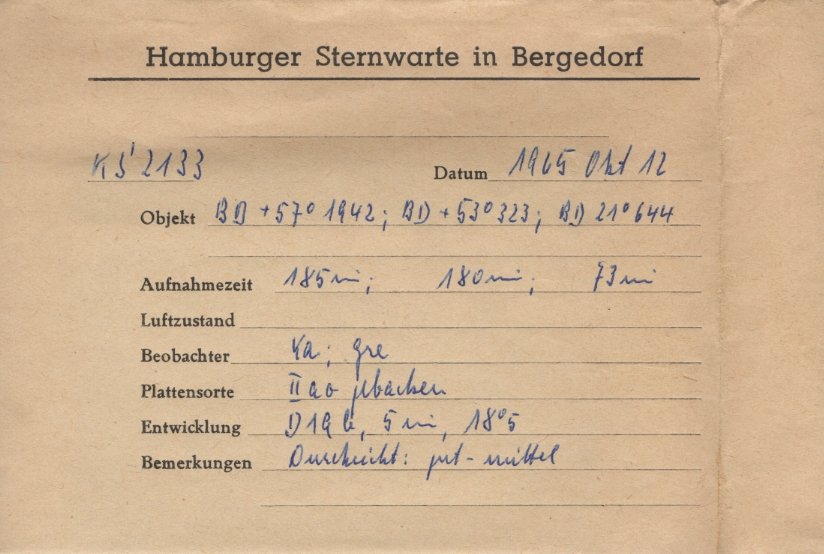 Hamburger Sternwarte in Bergedorf
KS 2133 Datum 1965 Okt 12
Objekt BD +57° 1942; BD +53° 323; BD 21° 644
Aufnahmezeit 185 mi; 180 mi; 73 mi
Luftzustand
Beobachter Ka; gre
Plattensorte II a o gebacken
Entwicklung D19b, 5 mi, 18°5
Bemerkungen Durchsicht: gut - mittel